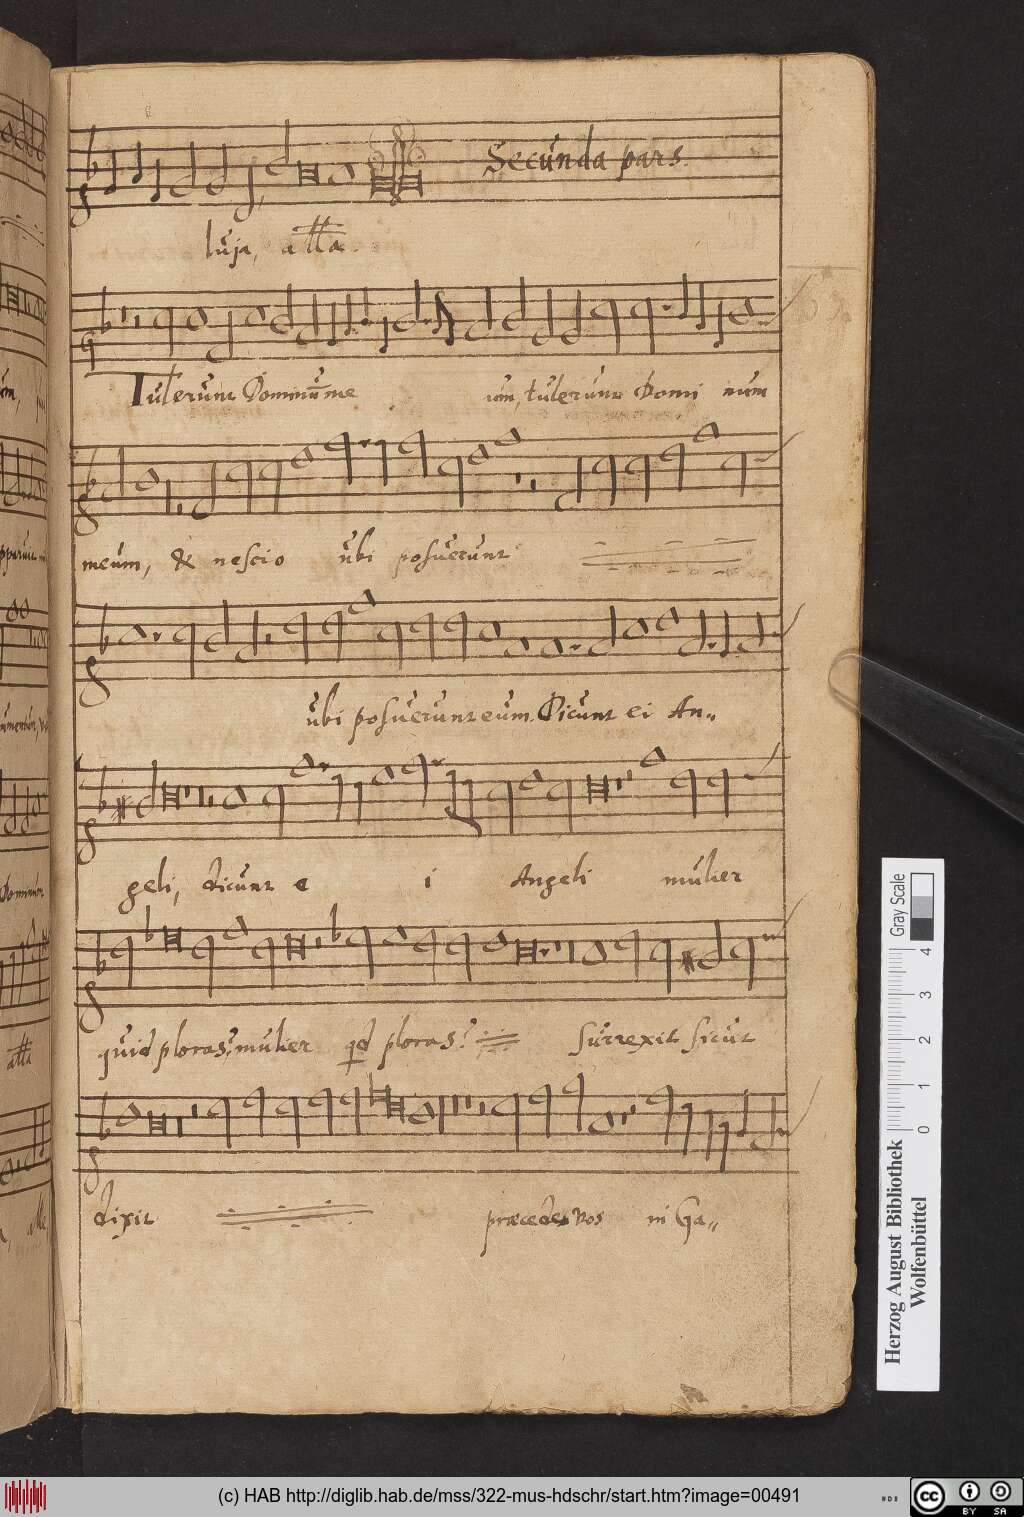 Secunda pars
luja, alla
Tulerunt Dominū me um, tulerunt Domi num
meum, & nescio ubi posuerunt
ubi posuerunt eum. Dicunt ei An„
geli, dicunt e i Angeli mulier
quid ploras, mulier qd ploras? Surrexit sicut
dixit præcedet vos in Ga„
Gray Scale
0 1 2 3 4
Herzog August Bibliothek
Wolfenbüttel
(c) HAB http://diglib.hab.de/mss/322-mus-hdschr/start.htm?image=00491
cc BY SA